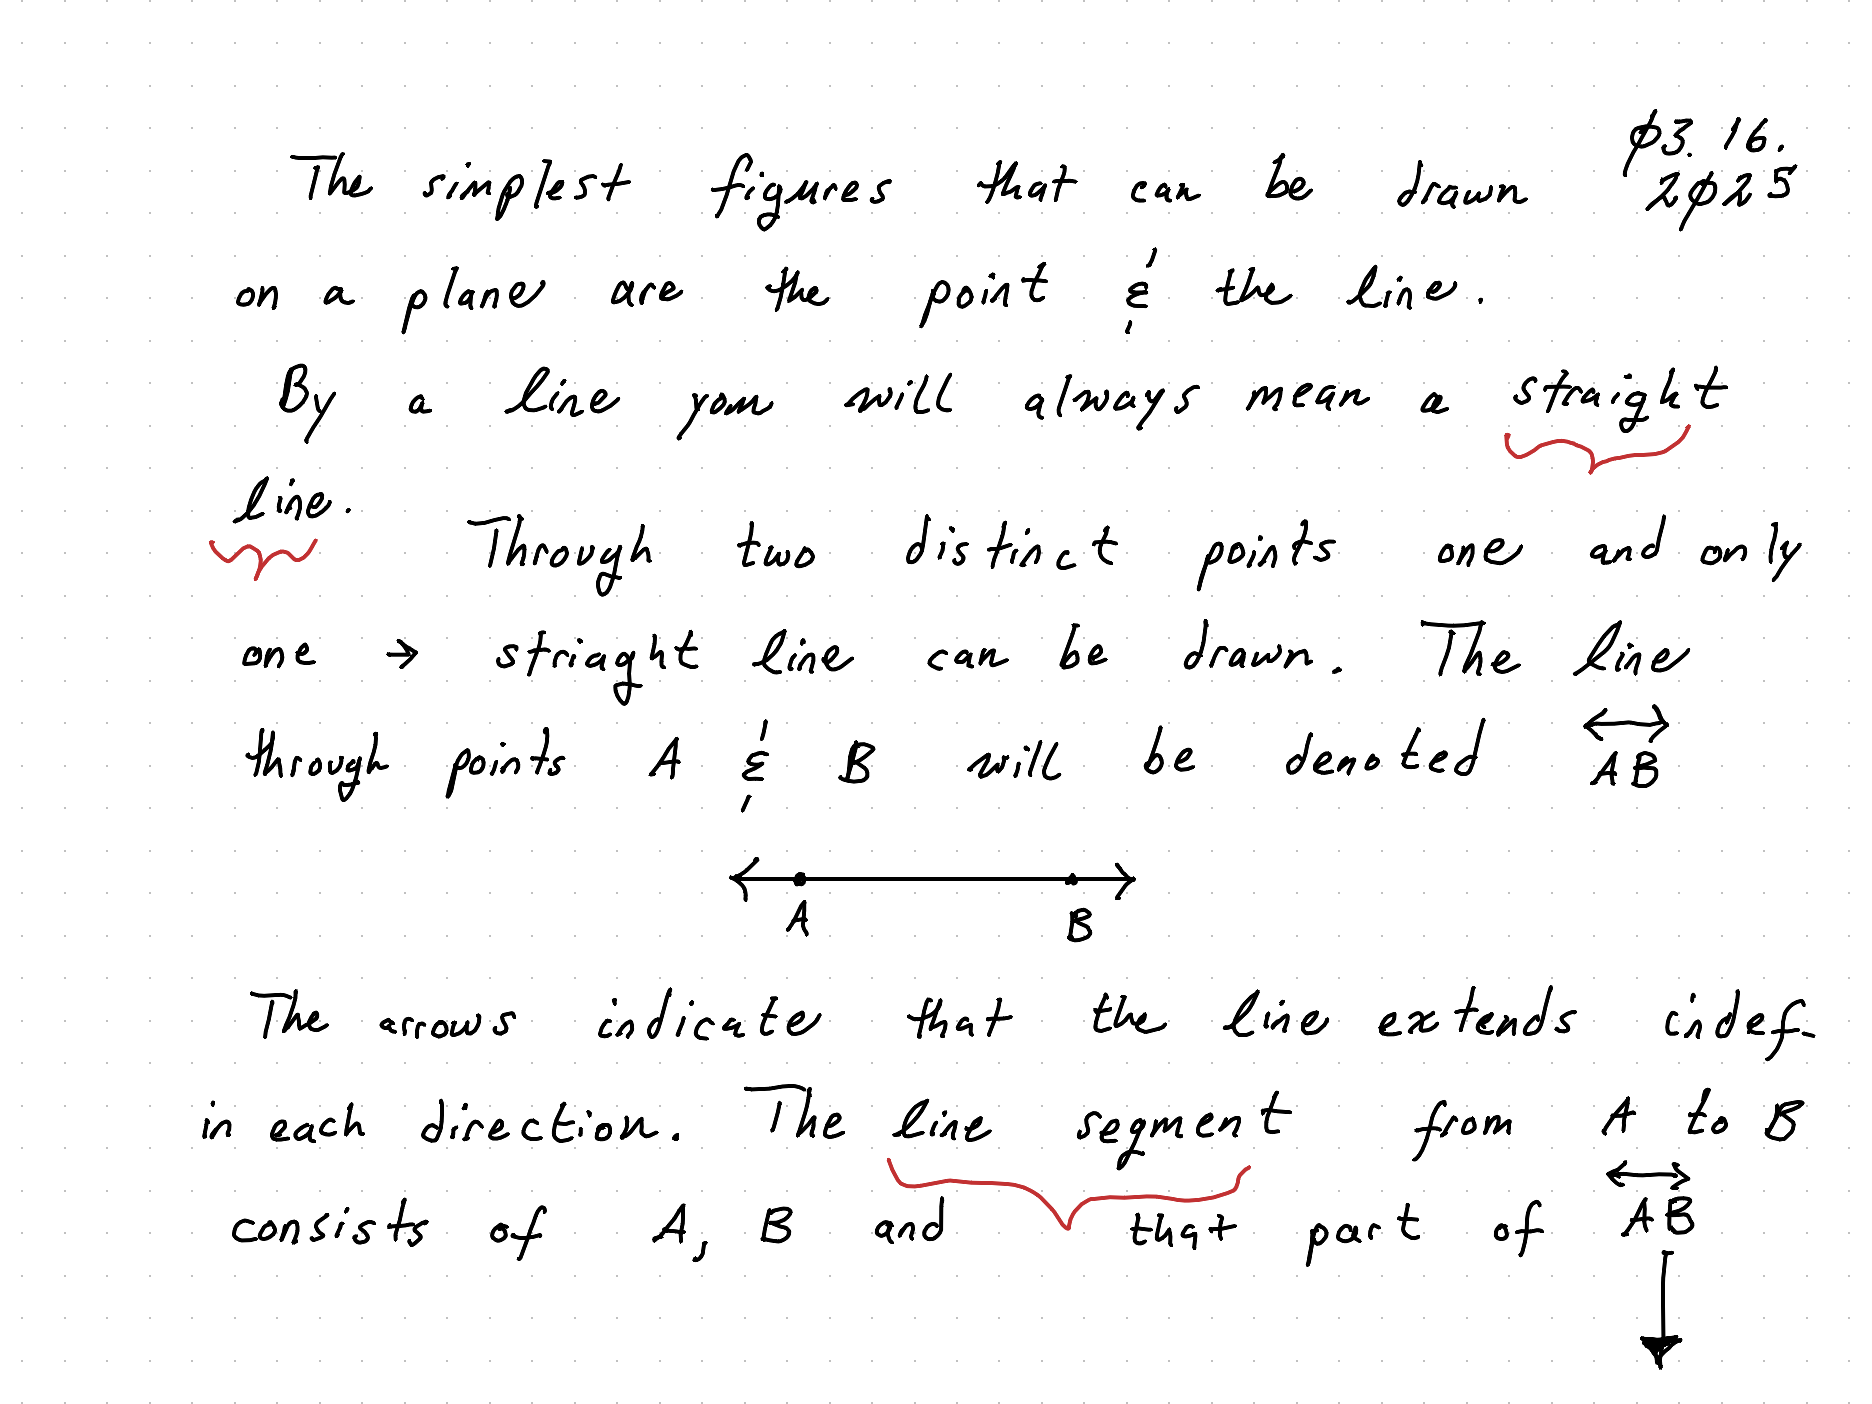 The simplest figures that can be drawn
ø3. 16.
2ø25
on a plane are the point & the line.
By a line you will always mean a straight
line. Through two distinct points one and only
one → striaght line can be drawn. The line
through points A & B will be denoted ↔AB
A B
The arrows indicate that the line extends indef-
in each direction. The line segment from A to B
consists of A, B and that part of ↔AB